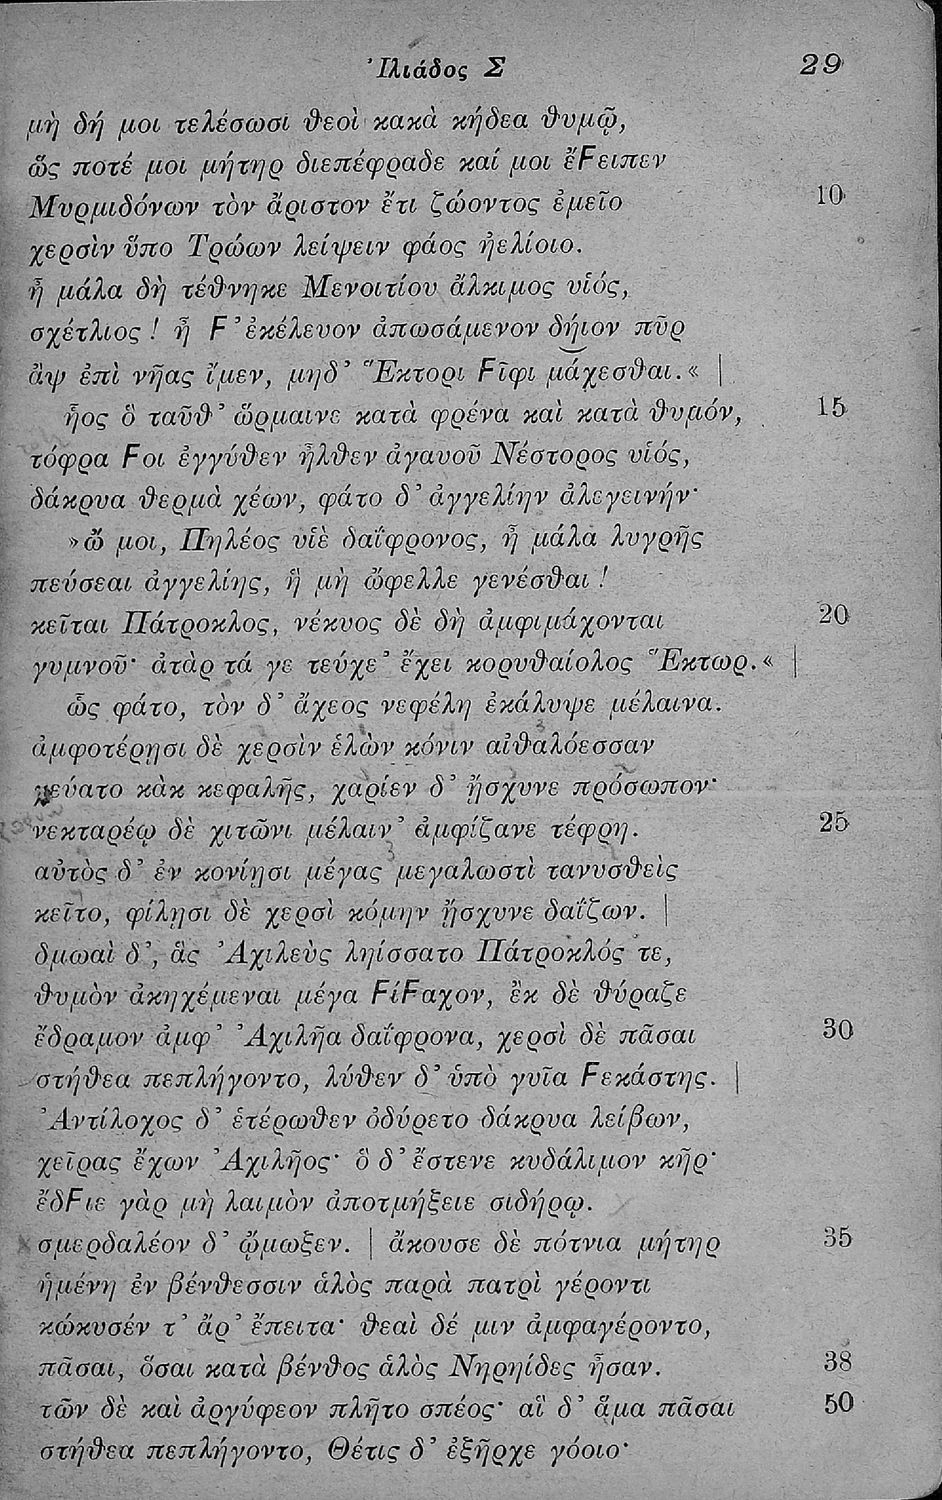 Ἰλιάδος Σ 29
μὴ δή μοι τελέσωσι θεοὶ κακὰ κήδεα θυμῷ,
ὥς ποτέ μοι μήτηρ διεπέφραδε καί μοι ἔϜειπεν
Μυρμιδόνων τὸν ἄριστον ἔτι ζώοντος ἐμεῖο 10
χερσὶν ὕπο Τρώων λείψειν φάος ἠελίοιο.
ἦ μάλα δὴ τέθνηκε Μενοιτίου ἄλκιμος υἱός,
σχέτλιος! ἦ Ϝ’ ἐκέλευον ἀπωσάμενον δήιον πῦρ
ἂψ ἐπὶ νῆας ἴμεν, μηδ’ Ἕκτορι Ϝῖφι μάχεσθαι.« |
ἧος ὃ ταῦθ’ ὥρμαινε κατὰ φρένα καὶ κατὰ θυμόν, 15
τόφρα Ϝοι ἐγγύθεν ἦλθεν ἀγαυοῦ Νέστορος υἱός,
δάκρυα θερμὰ χέων, φάτο δ’ ἀγγελίην ἀλεγεινήν·
»ὤ μοι, Πηλέος υἱὲ δαΐφρονος, ἦ μάλα λυγρῆς
πεύσεαι ἀγγελίης, ἣ μὴ ὤφελλε γενέσθαι!
κεῖται Πάτροκλος, νέκυος δὲ δὴ ἀμφιμάχονται 20
γυμνοῦ· ἀτὰρ τά γε τεύχε’ ἔχει κορυθαίολος Ἕκτωρ.« |
ὣς φάτο, τὸν δ’ ἄχεος νεφέλη ἐκάλυψε μέλαινα.
ἀμφοτέρῃσι δὲ χερσὶν ἑλὼν κόνιν αἰθαλόεσσαν
χεύατο κὰκ κεφαλῆς, χαρίεν δ’ ᾔσχυνε πρόσωπον·
νεκταρέῳ δὲ χιτῶνι μέλαιν’ ἀμφίζανε τέφρη. 25
αὐτὸς δ’ ἐν κονίῃσι μέγας μεγαλωστὶ τανυσθεὶς
κεῖτο, φίλῃσι δὲ χερσὶ κόμην ᾔσχυνε δαΐζων. |
δμωαὶ δ’, ἃς Ἀχιλεὺς ληίσσατο Πάτροκλός τε,
θυμὸν ἀκηχέμεναι μέγα ϜίϜαχον, ἐκ δὲ θύραζε
ἔδραμον ἀμφ’ Ἀχιλῆα δαΐφρονα, χερσὶ δὲ πᾶσαι 30
στήθεα πεπλήγοντο, λύθεν δ’ ὑπὸ γυῖα Ϝεκάστης. |
Ἀντίλοχος δ’ ἑτέρωθεν ὀδύρετο δάκρυα λείβων,
χεῖρας ἔχων Ἀχιλῆος· ὃ δ’ ἔστενε κυδάλιμον κῆρ·
ἔδϜιε γὰρ μὴ λαιμὸν ἀποτμήξειε σιδήρῳ.
σμερδαλέον δ’ ᾤμωξεν. | ἄκουσε δὲ πότνια μήτηρ 35
ἡμένη ἐν βένθεσσιν ἁλὸς παρὰ πατρὶ γέροντι
κώκυσέν τ’ ἄρ’ ἔπειτα· θεαὶ δέ μιν ἀμφαγέροντο,
πᾶσαι, ὅσαι κατὰ βένθος ἁλὸς Νηρηίδες ἦσαν. 38
τῶν δὲ καὶ ἀργύφεον πλῆτο σπέος· αἳ δ’ ἅμα πᾶσαι 50
στήθεα πεπλήγοντο, Θέτις δ’ ἐξῆρχε γόοιο·